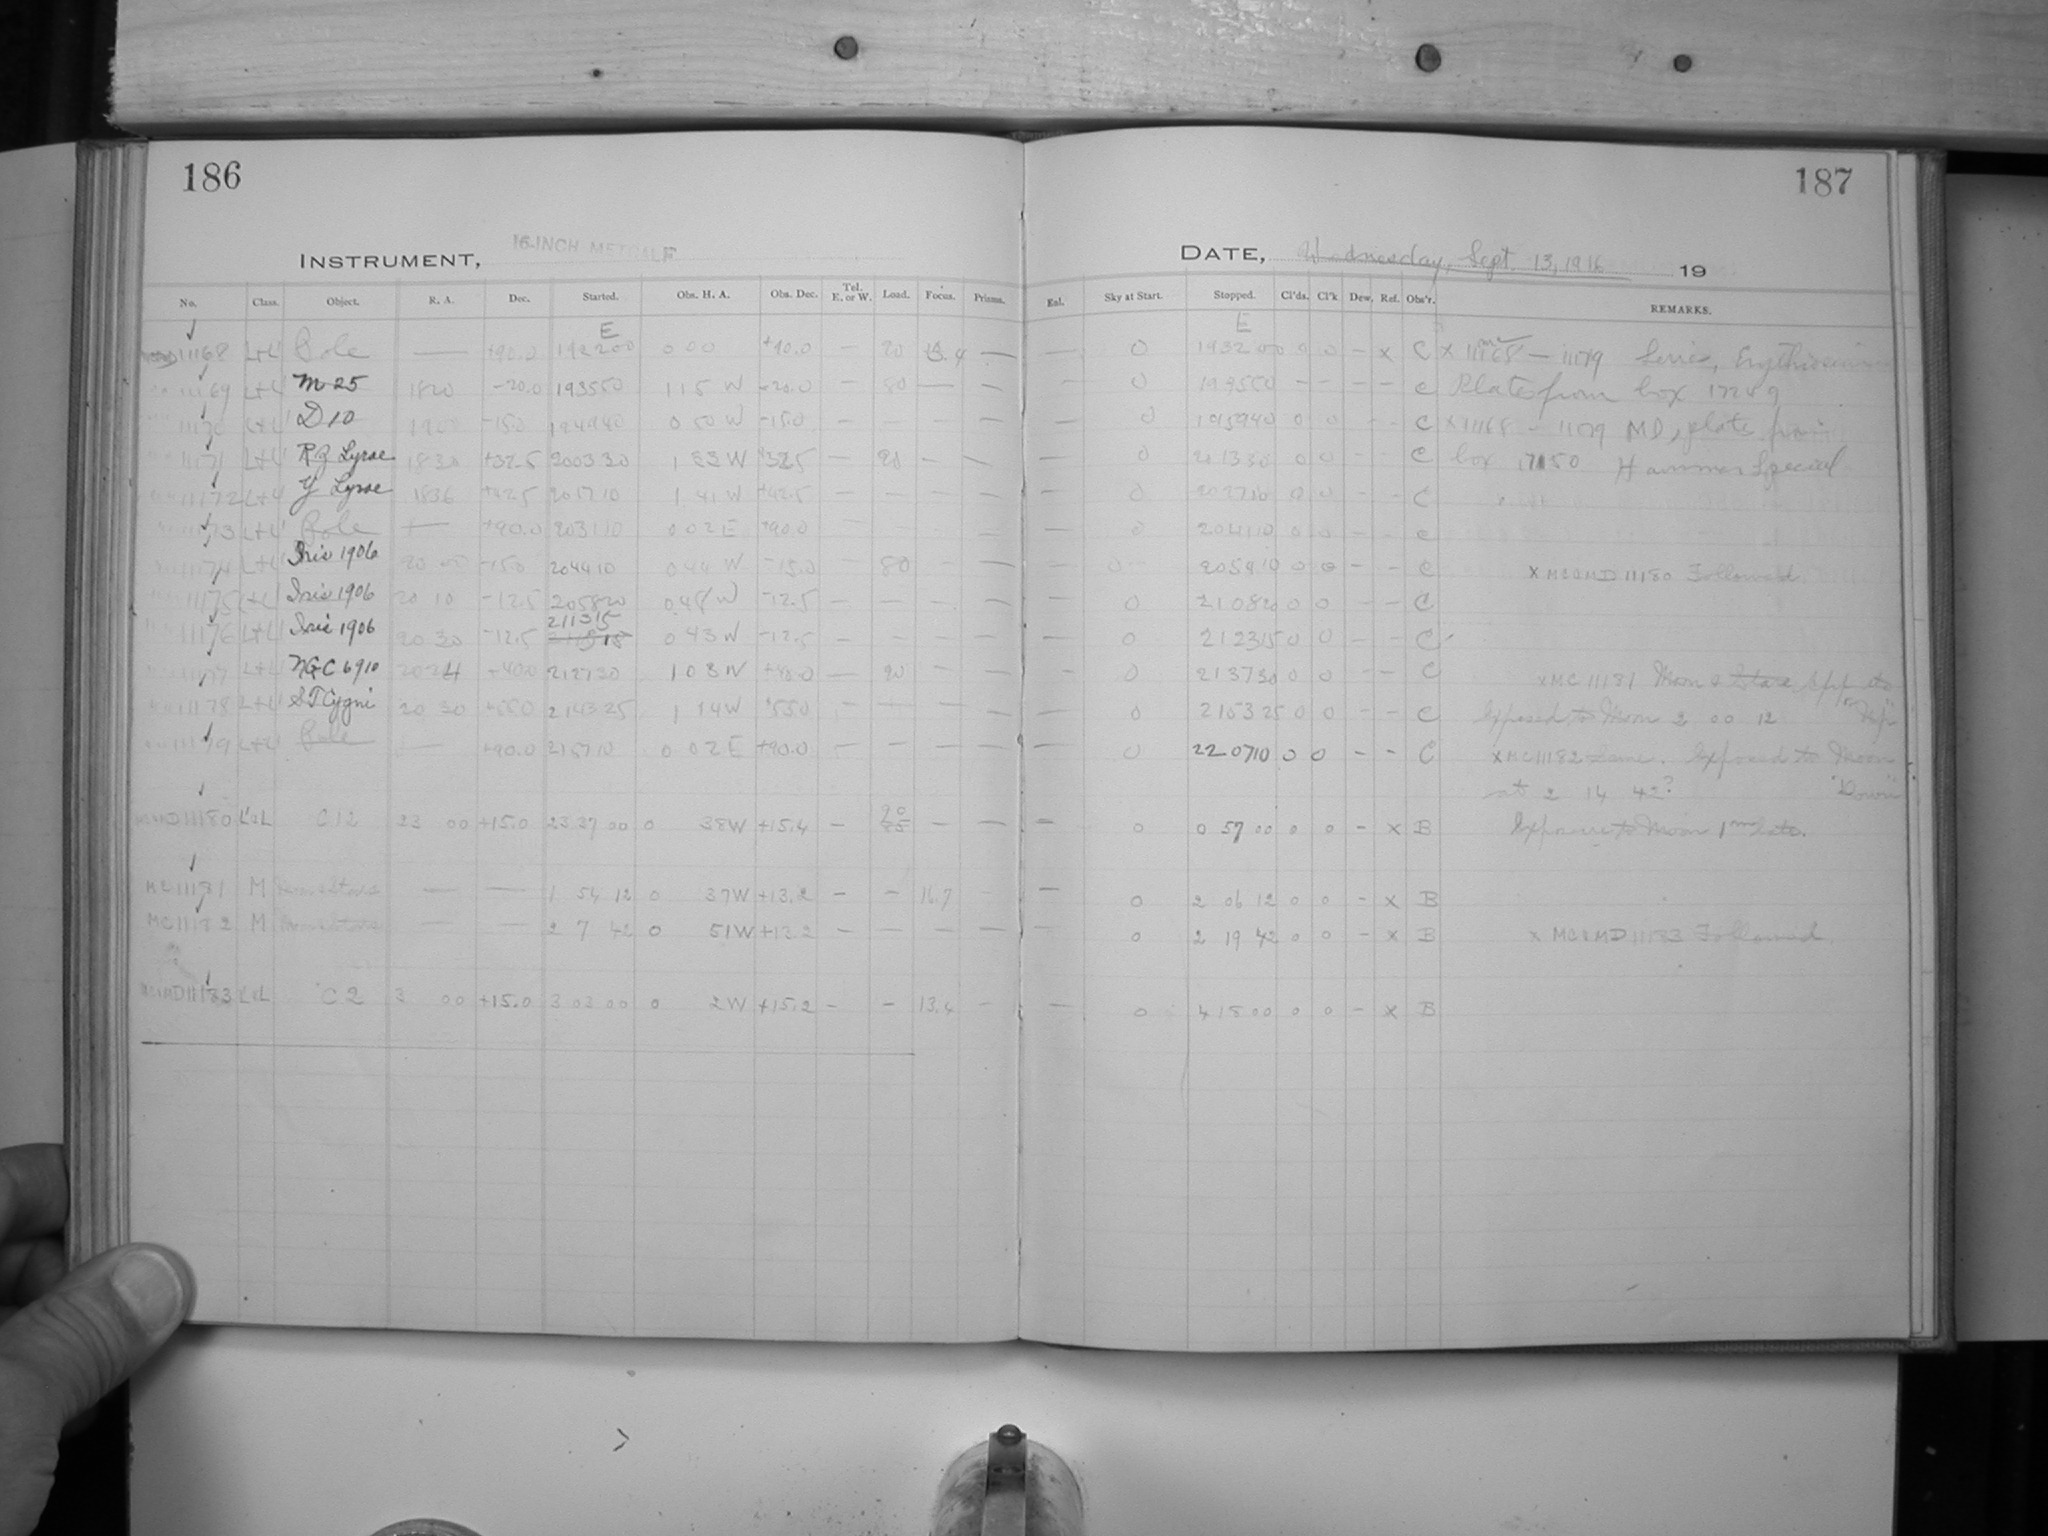 186
187
INSTRUMENT, 16-INCH METCALF
DATE, Wednesday, Sept. 13, 1916 19
No. Class. Object. R. A. Dec. Started. Obs. H. A. Obs. Dec. Tel. E. or W. Load. Focus. Prisms. Enl. Sky at Start. Stopped. Cl'ds. Cl'k Dew. Ref. Obs'r. REMARKS.
E E
11168 L+L' Pole — +90.0 192200 0 00 +90.0 — 20 13.4 — — 0 193200 0 0 - x C x 11168 — 11179 Series,
11169 L+L' M 25 1820 -20.0 193550 1 15 W -20.0 — 80 — — — 0 - - - - C Plate from box 17249
11170 L+L' D 10 -15.0 194940 0 50 W -15.0 — — — — — 0 195940 0 0 - - C x 11168 - 11179 MD, plate from
11171 L+L' RZ Lyrae 1830 +32.5 200330 1 33 W +32.5 — 20 — — — 0 201330 0 0 - - C box 17150 Hammer Special
11172 L+L' Y Lyrae 1836 +42.5 201710 1 41 W +42.5 — — — — — 0 202710 0 0 - - C
11173 L+L' Pole — +90.0 203110 0 02 E +90.0 — — — 0 204110 0 0 C
11174 L+L' Iris 1906 20 -15.0 204410 0 44 W -15.0 — 80 — — — 0 0 0 - - C x MC&MD 11180 Followed.
11175 L+L' Iris 1906 20 10 -12.5 205820 0 48 W -12.5 — — — — — 0 210820 0 0 - - C
211315
11176 L+L' Iris 1906 20 30 -12.5 0 43 W -12.5 — — — — — 0 212315 0 0 - - C
11177 L+L' NGC 6910 2024 +40.0 212730 1 03 W +40.0 — 20 — — — 0 213730 0 0 - - C x MC 11181 Moon & Stars
11178 L+L' ST Cygni 20 30 +55.0 214325 1 14 W +55.0 — — — — — 0 215325 0 0 - - C Exposed to Moon 2 00 12 "Up"
11179 L+L' Pole — +90.0 215710 0 02 E +90.0 — — — — — 0 220710 0 0 - - C x MC 11182 Same. Exposed to Moon
at 2 14 42? "Down"
MD11180 L&L C 12 23 00 +15.0 23 37 00 0 38 W +15.4 — 20 85 — — — 0 0 57 00 0 0 - x B Exposure to Moon
MC 11181 M Moon&Stars — — 1 54 12 0 37 W +13.2 — — 16.7 — — 0 2 06 12 0 0 - x B
MC 11182 M Moon&Stars — — 2 7 42 0 51 W +13.2 — — — — — 0 2 19 42 0 0 - x B x MC&MD 11183 Followed.
MC&MD11183 L&L C 2 3 00 +15.0 3 03 00 0 2 W +15.2 — — 13.4 — — 0 4 18 00 0 0 - x B